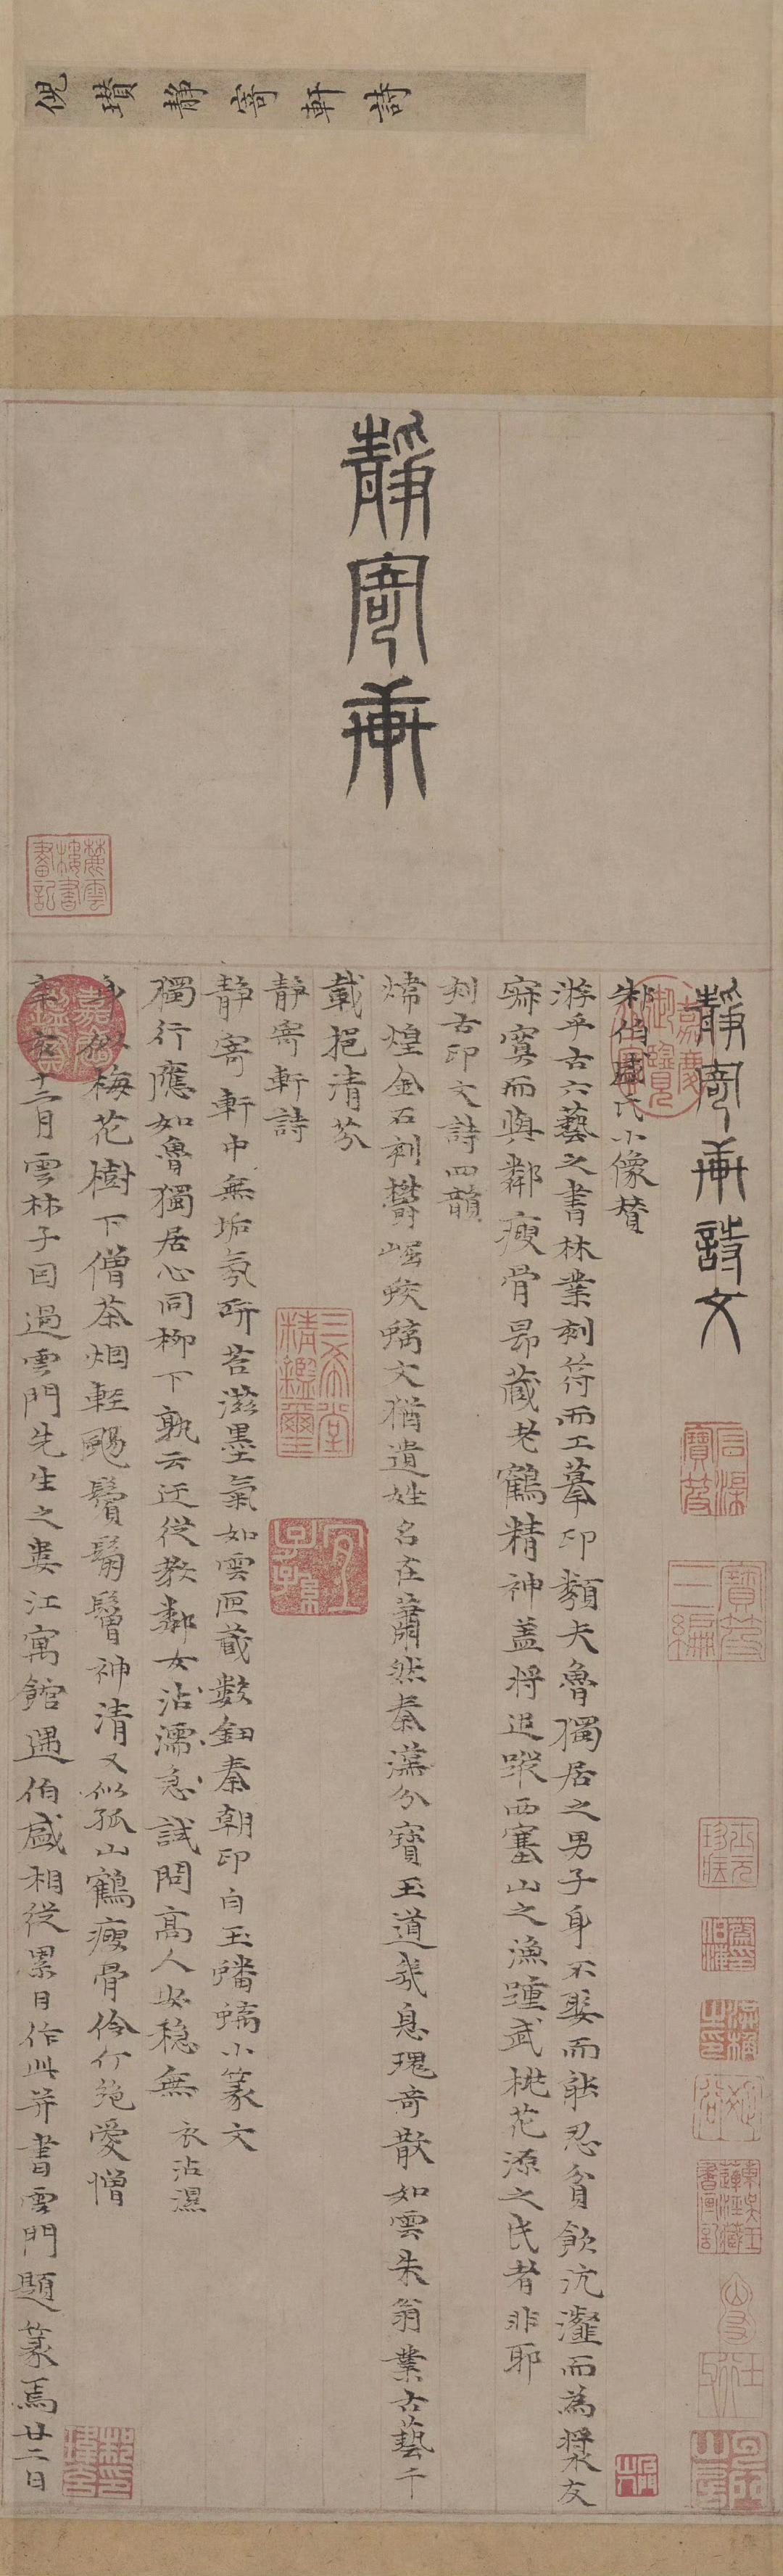 倪瓚靜寄軒詩
靜寄軒
靜寄軒詩文
朱伯盛氏小像贊
游乎古六藝之書林業刻符而工摹印類夫魯獨居之男子身不娶而能忍貧飲沆瀣而為漿友
寂寞而與鄰瘦骨昂藏老鶴精神蓋將追蹤西塞山之漁踵武桃花源之民者非耶
刻古印文詩四韻
煒煌金石刻鬱崛蛟螭文猶遺姓名在蕭然秦漢分寶玉道幾息瑰奇散如雲朱翁業古藝千
載挹清芬
靜寄軒詩
靜寄軒中無垢氛研苔滋墨氣如雲匣藏數鈕秦朝印白玉蟠螭小篆文
獨行應如魯獨居心同柳下孰云迂從教鄰女沾濡急試問高人安穩無 衣沾濕
梅花樹下僧茶烟輕颺鬢鬅鬙神清又似孤山鶴瘦骨伶仃絕愛憎
辛亥十二月雲林子因過雲門先生之婁江寓館遇伯盛相從累日作此并書雲門題篆焉廿二日
麓雲樓書畫記
嘉慶御覽之寶
嘉慶鑑賞
三希堂精鑑璽
宜子孫
石渠寶笈
寶笈三編